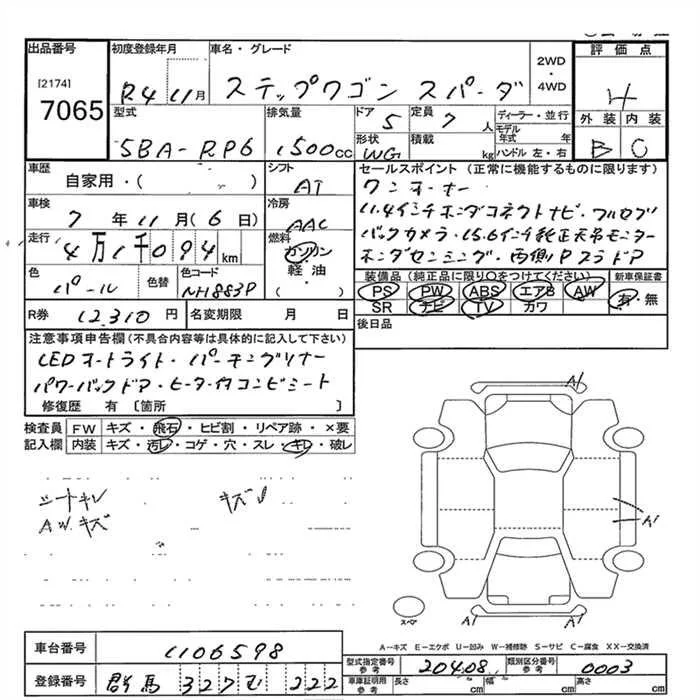 出品番号
[2174]
7065
初度登録年月
R4 11月
車名・グレード
ステップワゴン スパーダ
2WD
・
4WD
評価点
4
外装 内装
B C
型式
5BA-RP6
排気量
1500cc
ドア
5
定員
7人
ディーラー・並行
モデル年式 年
ハンドル 左・右
形状
WG
積載
kg
車歴
自家用・( )
シフト
AT
車検
7年11月(6日)
冷房
AAC
走行
4万1千094km
燃料
ガソリン
・
軽・油
( )
色
パール
色替
色コード
NH883P
R券 12,310円
名変期限 月 日
セールスポイント (正常に機能するものに限ります)
ワンオーナー
11.4インチホンダコネクトナビ・フルセグ
バックカメラ・15.6インチ純正天吊モニター
ホンダセンシング・両側Pスラドア
装備品(純正品に限り○をつけてください)
新車保証書
PS PW ABS エアB AW
有・無
SR ナビ TV カワ
後日品
注意事項申告欄(不具合内容等は具体的に記入して下さい)
LEDオートライト・パーキングソナー
パワーバックドア・ヒーター付コンビシート
修復歴 有 〔箇所 〕
検査員
記入欄
FW キズ・飛石・ヒビ割・リペア跡・×要
内装 キズ・汚レ・コゲ・穴・スレ・キレ・破レ
シートキレ
A.W.キズ
キズ
A1
A1
A1
A1
スペア
A-キズ E-エクボ U-凹み W-補修跡 S-サビ C-腐食 XX-交換済
車台番号 1106598
登録番号 群馬 327 む 222
型式指定番号
参考
20408
類別区分番号
参考
0003
車庫証明用
参考
長さ cm
幅 cm
高さ cm